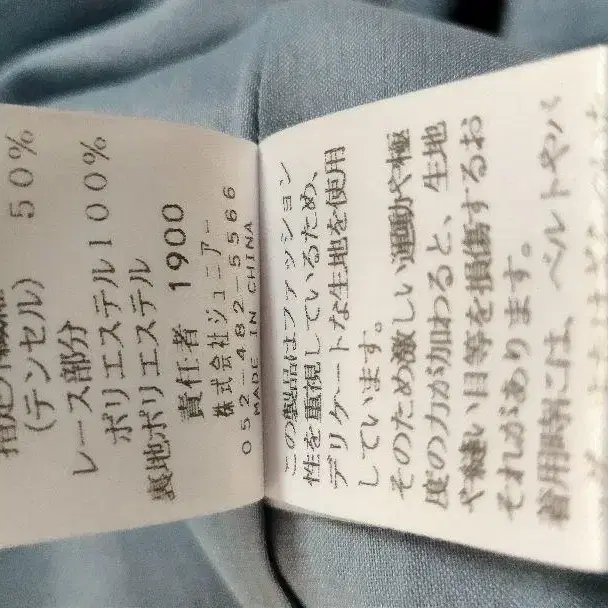 50%
(テンセル)
レース部分
ポリエステル100%
裏地ポリエステル
責任者 1900
株式会社ジュニアー
052-482-5566
MADE IN CHINA
この製品はファッション
性を重視しているため、
デリケートな生地を使用
しています。
そのため激しい運動や極
度の力が加わると、生地
や縫い目等を損傷するお
それがあります。
着用時には、ベルトやバ